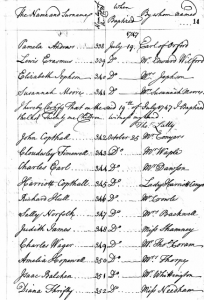 The Name and Surname When Baptized By whom named
14
1747
Pamela Andrews 338 July 19. Earl of Orford
Lewis Erasmus 339 Do Mr Edward Wilford
Elizabeth Jephson 340 Do Mr Jephson
Susannah Morris 341 Do Mrs Susannah Morris
I hereby Certify that on the said 19th of July 1747 I Baptized
Tho. Tully
John Copthall 342 October 25 Mr Conyers
Cloudesley 343 Do Mr Waple
Charles Earl 344 Do Mr Dawson
Harriott Copthall 345 Do Lady Harriott
Richard Hull 346 Do Mr Crowle
Sally Norfolk 347 Do Mrs Backwell
Judith James 348 Do Miss Shanney
Charles Wager 349 Do Mr Thos Coram
Amelia Hopewell 350 Do Mrs Thorpe
Jane Belchen 351 Do Mr Whittington
Diana Thrifty 352 Do Miss Needham